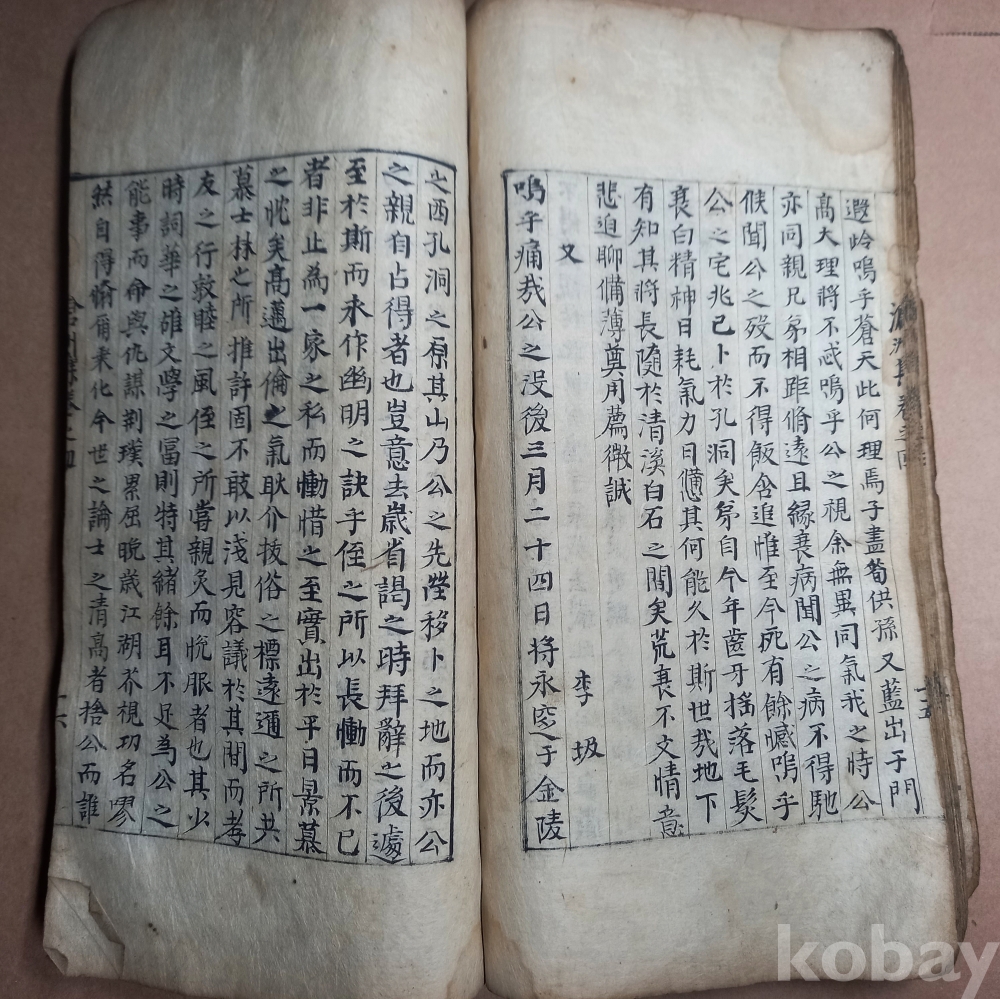 遐岭嗚乎蒼天此何理焉子盡荀供孫又藍出于門
高大理將不忒嗚乎公之視余無異同氣我之時公
亦同親兄弟相距脩遠且緣衰病聞公之病不得馳
候聞公之歿而不得飯含追惟至今死有餘憾嗚乎
公之宅兆已卜於孔洞矣弟自今年齒牙搖落毛髮
衰白精神日耗氣力日憊其何能久於斯世哉地下
有知其將長隨於清溪白石之間矣荒衰不文情意
悲迫聊備薄奠用薦微誠
又 李圾
嗚乎痛哉公之沒後三月二十四日將永窆于金陵
之西孔洞之原其山乃公之先塋移卜之地而亦公
之親自占得者也豈意去歲省謁之時拜辭之後遽
至於斯而未作幽明之訣乎侄之所以長慟而不已
者非止為一家之私而慟惜之至實出於平日景慕
之忱矣高邁出倫之氣耿介拔俗之標遠邇之所共
慕士林之所推許固不敢以淺見容議於其間而孝
友之行敦睦之風侄之所嘗親炙而悅服者也其少
時詞華之雄文學之富則特其緒餘耳不足為公之
能事而命與仇謀荊璞累屈晩歲江湖芥視功名嘐
然自得翛爾乘化今世之論士之清高者捨公而誰
卷之四
十六
kobay